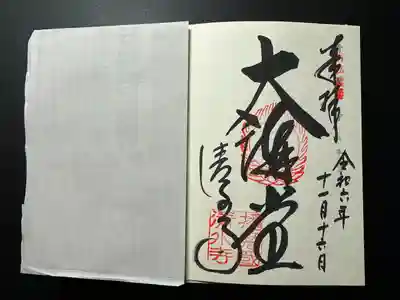 奉拝
令和六年
十一月十六日
大講堂
清水寺